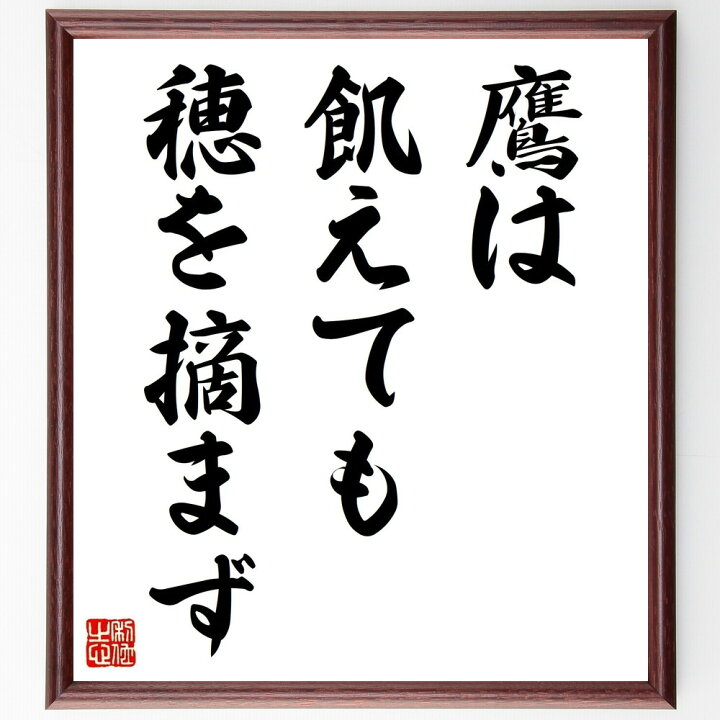 鷹は
飢えても
穂を摘まず